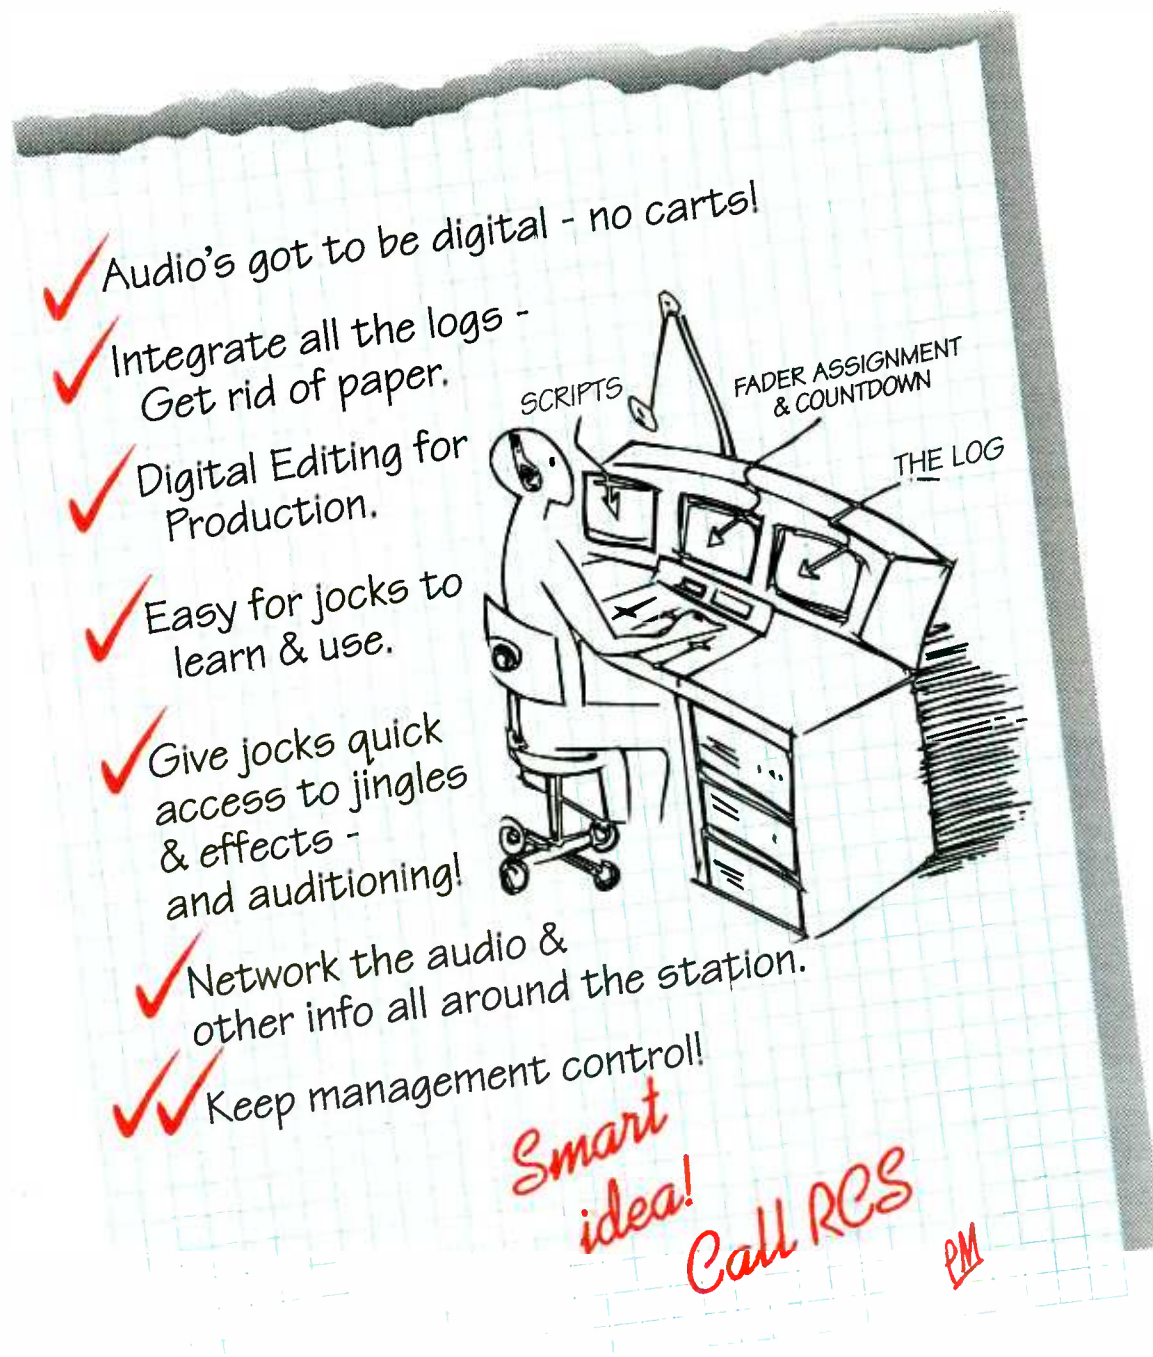 Audio's got to be digital - no carts!
Integrate all the logs -
Get rid of paper.
Digital Editing for
Production.
Easy for jocks to
learn & use.
Give jocks quick
access to jingles
& effects -
and auditioning!
Network the audio &
other info all around the station.
Keep management control!
SCRIPTS
FADER ASSIGNMENT
& COUNTDOWN
THE LOG
Smart
idea!
Call RCS
PM